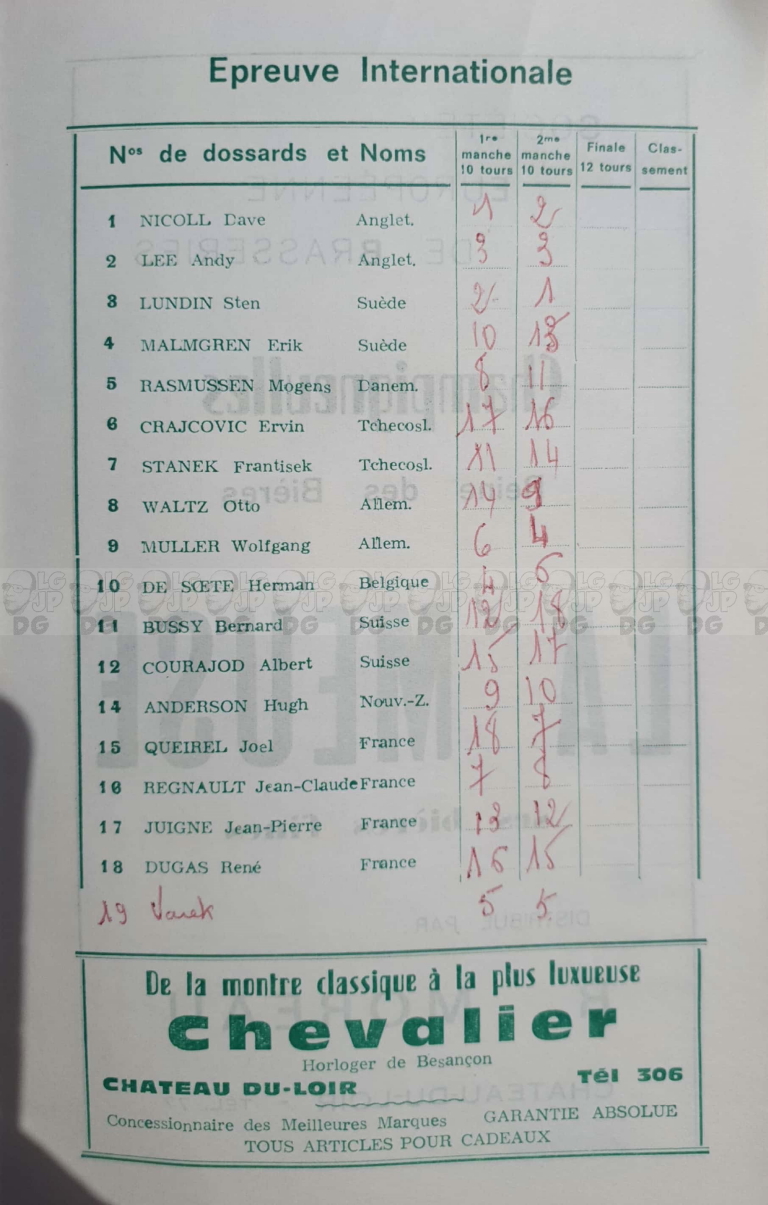 Epreuve Internationale
Nos de dossards et Noms 1re manche 10 tours 2me manche 10 tours Finale 12 tours Clas-sement
1 NICOLL Dave Anglet. 1 2
2 LEE Andy Anglet. 3 3
3 LUNDIN Sten Suède 2 1
4 MALMGREN Erik Suède 10 13
5 RASMUSSEN Mogens Danem. 8 11
6 CRAJCOVIC Ervin Tchecosl. 17 16
7 STANEK Frantisek Tchecosl. 11 14
8 WALTZ Otto Allem. 14 9
9 MULLER Wolfgang Allem. 6 4
10 DE SŒTE Herman Belgique 4 6
11 BUSSY Bernard Suisse 12 18
12 COURAJOD Albert Suisse 15 17
14 ANDERSON Hugh Nouv.-Z. 9 10
15 QUEIREL Joel France 18 7
16 REGNAULT Jean-Claude France 7 8
17 JUIGNE Jean-Pierre France 13 12
18 DUGAS René France 16 15
19 5 5
De la montre classique à la plus luxueuse
Chevalier
Horloger de Besançon
CHATEAU DU-LOIR Tél 306
Concessionnaire des Meilleures Marques GARANTIE ABSOLUE
TOUS ARTICLES POUR CADEAUX